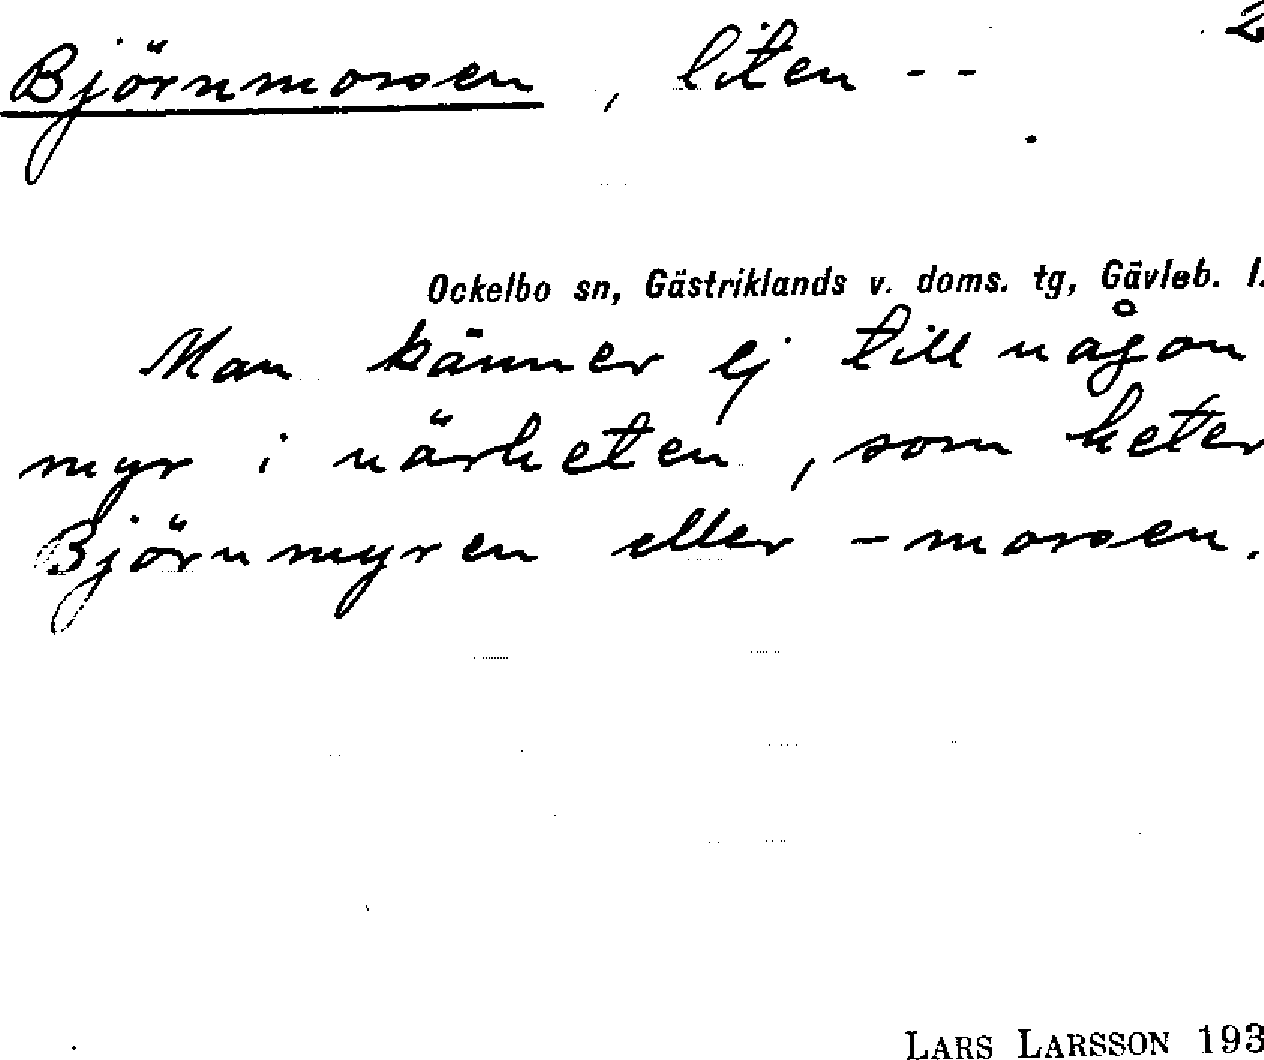 Björnmossen, liten -- 2
Ockelbo sn, Gästriklands v. doms. tg, Gävleb. l.
Man känner ej till någon
myr i närheten, som heter
Björnmyren eller -mossen.
LARS LARSSON 193